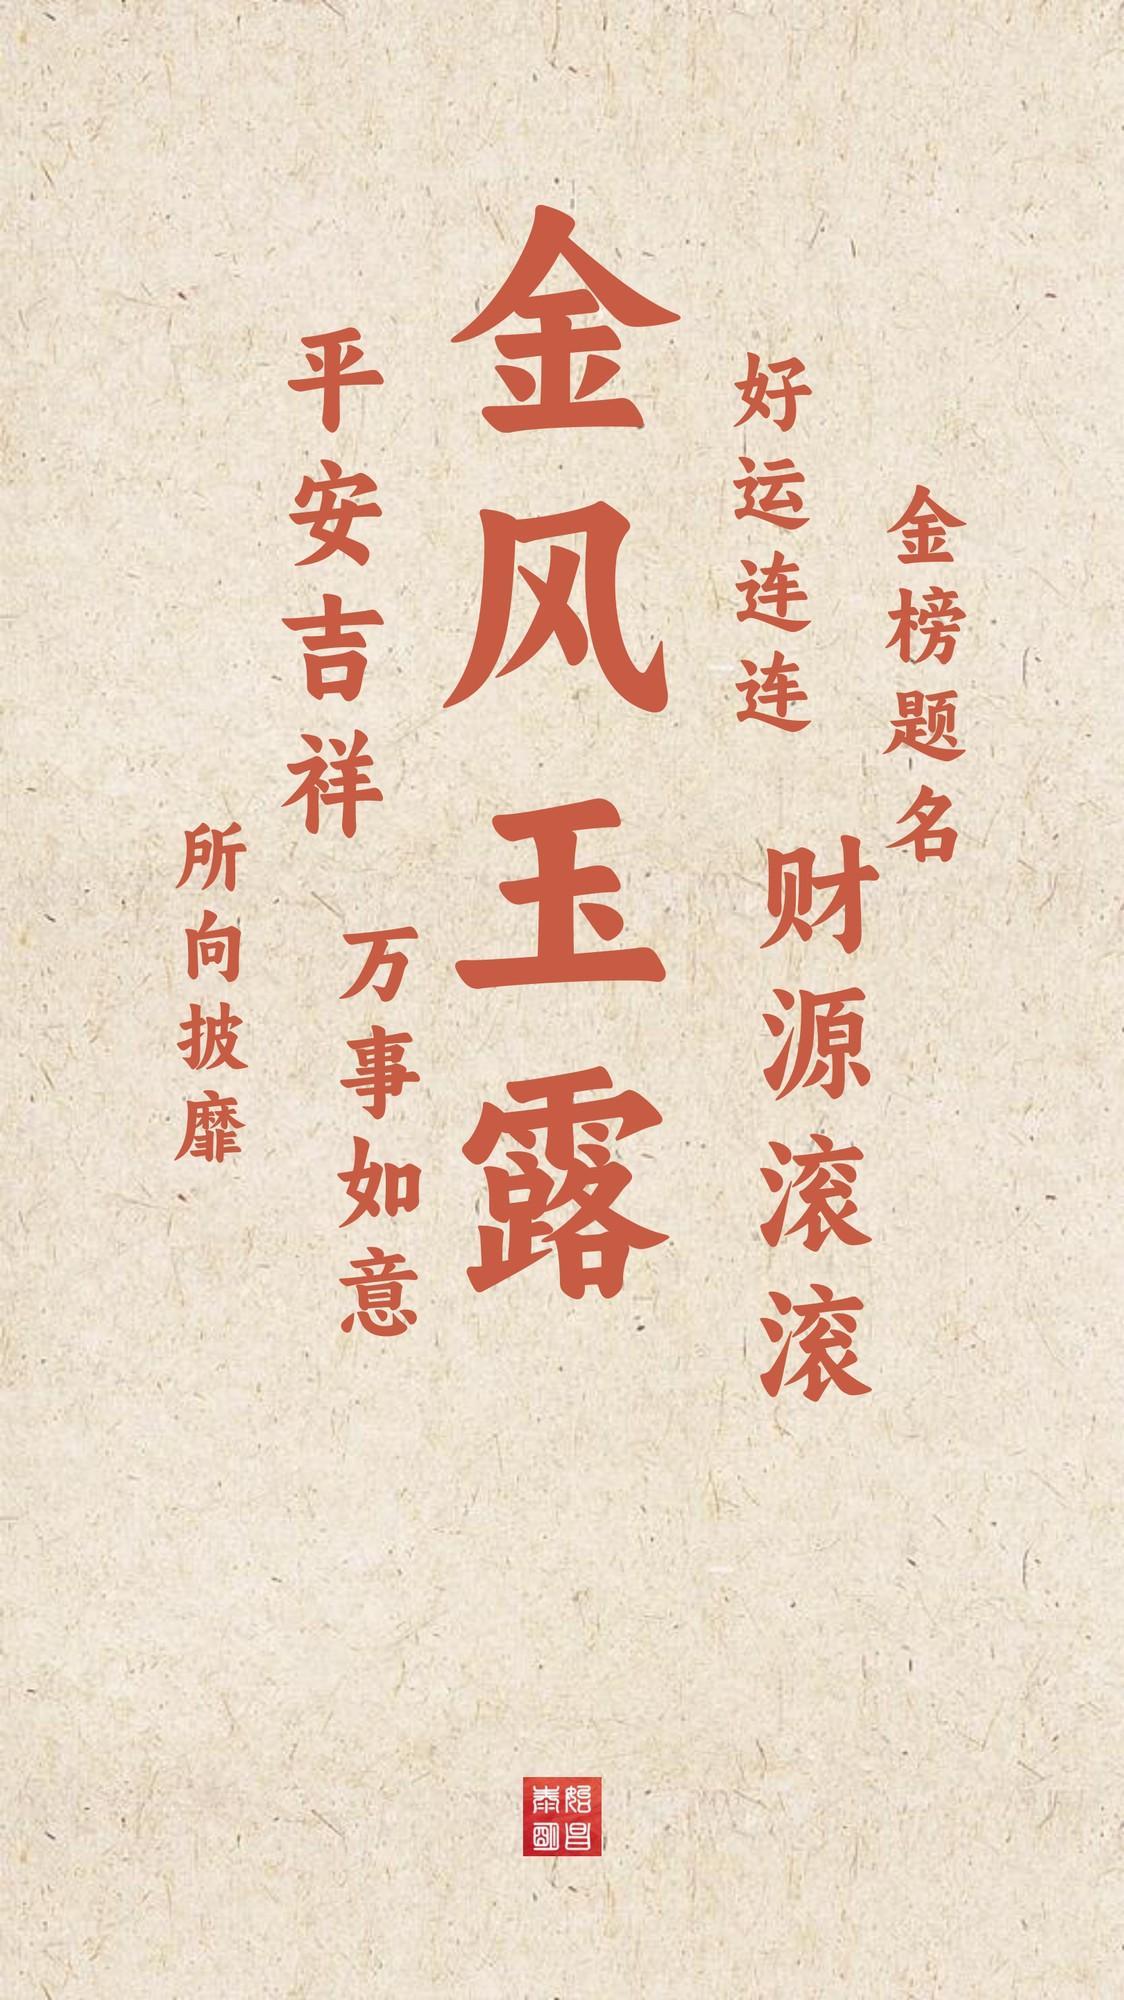 金榜题名
好运连连
财源滚滚
金风玉露
平安吉祥
万事如意
所向披靡